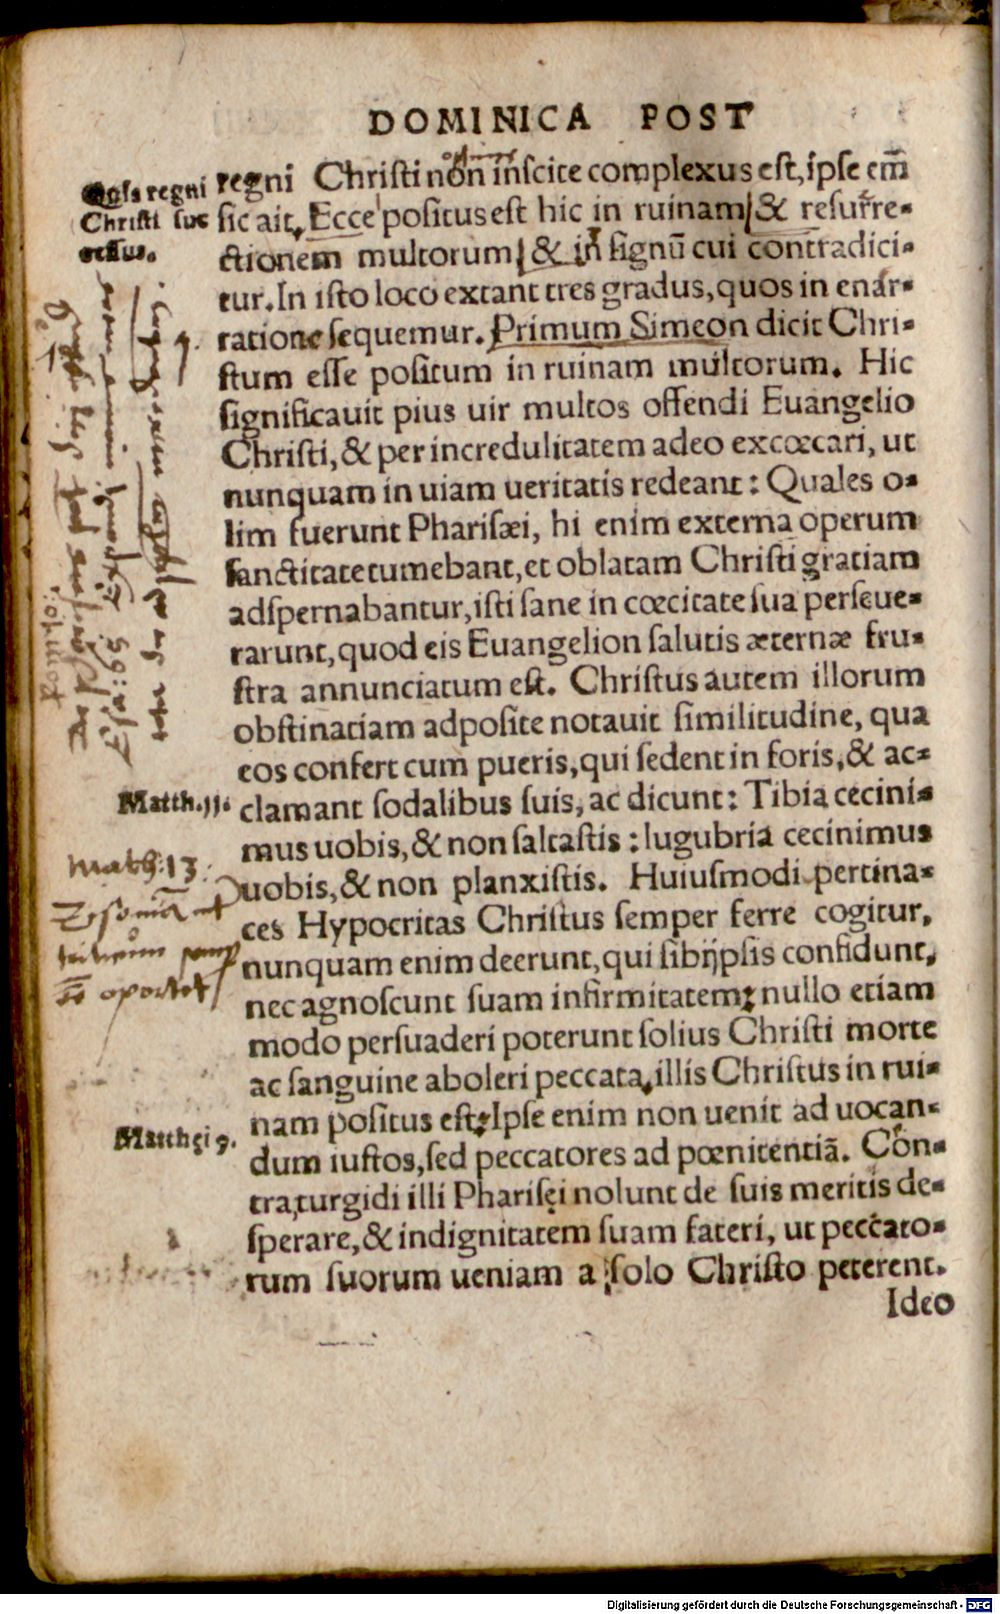 DOMINICA POST
regni Christi non inscite complexus est, ipse em̃
sic ait, Ecce positus est hic in ruinam, & resurre-
ctionem multorum, & in signũ cui contradici-
tur. In isto loco extant tres gradus, quos in enar-
ratione sequemur. Primum Simeon dicit Chri-
stum esse positum in ruinam multorum. Hic
significauit pius uir multos offendi Euangelio
Christi, & per incredulitatem adeo excœcari, ut
nunquam in uiam ueritatis redeant: Quales o-
lim fuerunt Pharisæi, hi enim externa operum
sanctitate tumebant, et oblatam Christi gratiam
adspernabantur, isti sane in cœcitate sua perseue-
rarunt, quod eis Euangelion salutis æternæ fru-
stra annunciatum est. Christus autem illorum
obstinatiam adposite notauit similitudine, qua
eos confert cum pueris, qui sedent in foris, & ac-
clamant sodalibus suis, ac dicunt: Tibia cecini-
mus uobis, & non saltastis: lugubria cecinimus
uobis, & non planxistis. Huiusmodi pertina-
ces Hypocritas Christus semper ferre cogitur,
nunquam enim deerunt, qui sibijpsis confidunt,
nec agnoscunt suam infirmitatem; nullo etiam
modo persuaderi poterunt solius Christi morte
ac sanguine aboleri peccata, illis Christus in rui-
nam positus est; Ipse enim non uenit ad uocan-
dum iustos, sed peccatores ad pœnitentiã. Con-
tra, turgidi illi Pharisęi nolunt de suis meritis de-
sperare, & indignitatem suam fateri, ut peccato-
rum suorum ueniam a solo Christo peterent.
Ideo
regni
Christi suc
cessus.
Esa: 59
Matth. 11.
Math: 13.
Zizaniã
oportet
Matthęi 9.
Digitalisierung gefördert durch die Deutsche Forschungsgemeinschaft - DFG